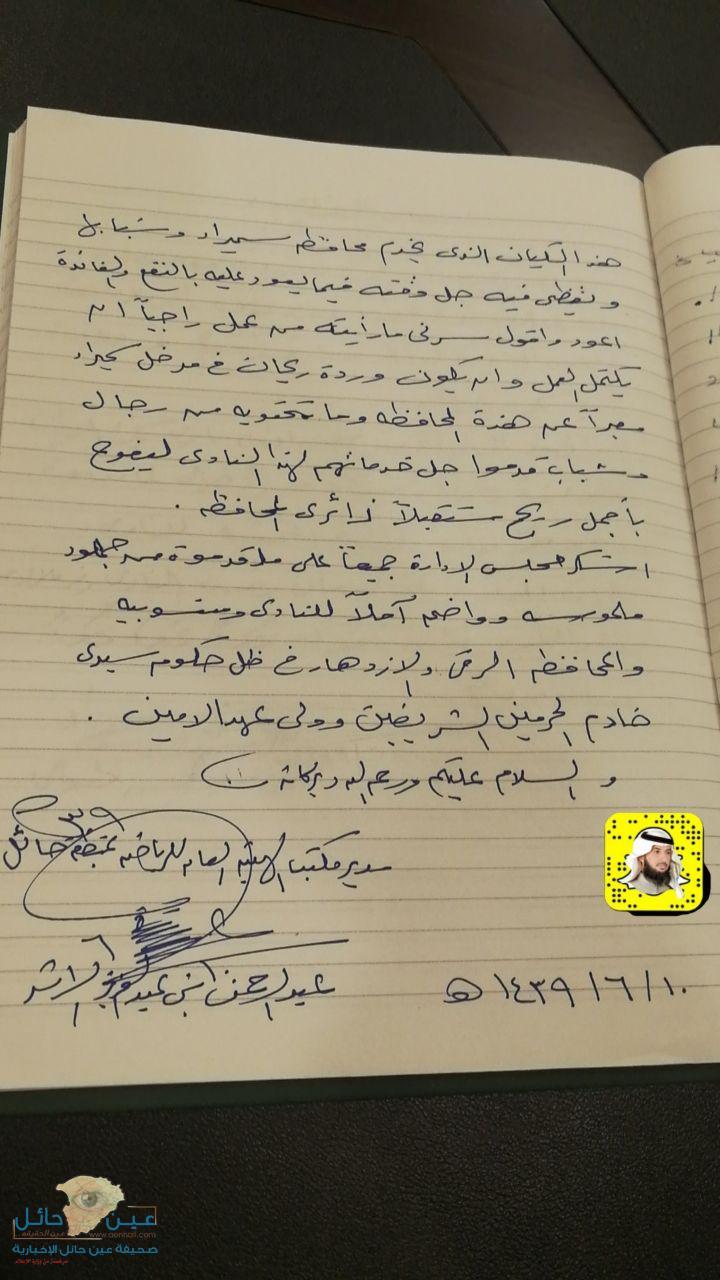 هذا الكيان الذي يخدم محافظه سميراء وشبابها
ويقضى فيه جل وقته فيما يعود عليه بالنفع والفائدة
اعود واقول سرنى ما رأيته من عمل راجياً ان
يكتمل العمل وان يكون وردة ريحان في مدخل سميراء
معبراً عن هذة المحافظه وما تحتويه من رجال
وشباب قدموا جل خدماتهم لهذا النادى ليفوح
بأجمل ريح مستقبلاً زائرى المحافظه .
اشكر مجلس الإدارة جميعاً على ما قدموة من جهود
ملموسه وواضحه آملاً للنادى ومنسوبيه
والمحافظه الرقى والإزدهار في ظل حكومه سيدى
خادم الحرمين الشريفين وولى عهدة الامين .
و السلام عليكم ورحمه الله وبركاته
مدير مكتب الهيئه العامه للرياضه بمنطقة حائل
عبدالرحمن بن عبدالعزيز الراشد
١٤٣٩/٦/١٠ هـ
عين حائل
www.aenhail.com
صحيفة عين حائل الإخبارية